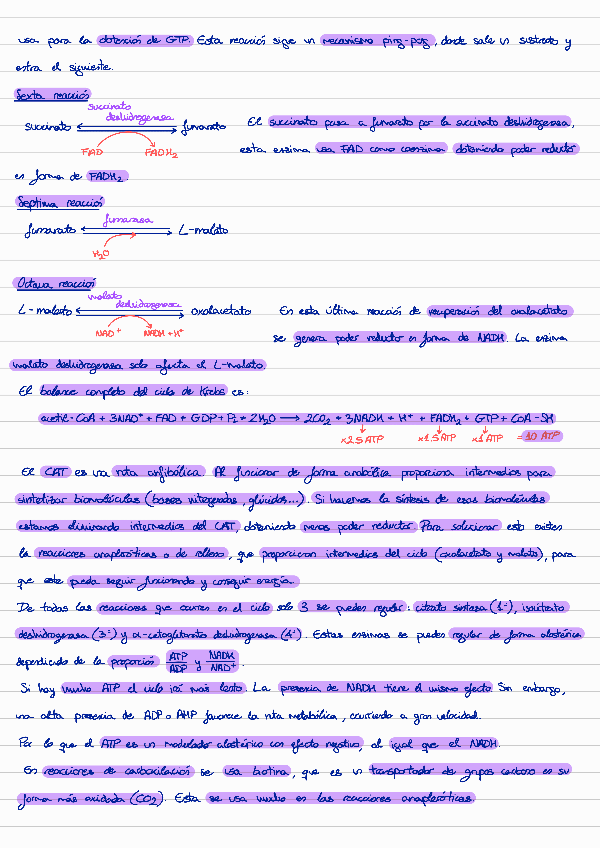 usa para la obtención de GTP. Esta reacción sigue un mecanismo ping-pong, donde sale un sustrato y
entra el siguiente.
Sexta reacción
succinato deshidrogenasa
succinato fumarato
FAD FADH2
El succinato pasa a fumarato por la succinato deshidrogenasa,
esta enzima usa FAD como coenzima obteniendo poder reductor
en forma de FADH2.
Septima reacción
fumarasa
fumarato L-malato
H2O
Octava reacción
malato deshidrogenasa
L-malato oxalacetato
NAD+ NADH+H+
En esta última reacción de recuperación del oxalacetato
se genera poder reductor en forma de NADH. La enzima
malato deshidrogenasa solo afecta al L-malato.
El balance completo del ciclo de Krebs es:
acetil-CoA + 3NAD+ + FAD + GDP + Pi + 2H2O → 2CO2 + 3NADH + H+ + FADH2 + GTP + CoA-SH
x2.5 ATP x1.5 ATP x1 ATP = 10 ATP
El CAT es una ruta anfibólica. Al funcionar de forma anabólica proporciona intermedios para
sintetizar biomoléculas (bases nitrogenadas, glúcidos...). Si hacemos la síntesis de esas biomoléculas
estamos eliminando intermedios del CAT, obteniendo menos poder reductor. Para solucionar esto existen
la reacciones anapleróticas o de relleno, que proporcionan intermedios del ciclo (oxalacetato y malato), para
que este pueda seguir funcionando y conseguir energía.
De todas las reacciones que ocurren en el ciclo solo 3 se pueden regular: citrato sintasa (1ª), isocitrato
deshidrogenasa (3ª) y α-cetoglutarato deshidrogenasa (4ª). Estas enzimas se pueden regular de forma alostérica
dependiendo de la proporción ATP/ADP y NADH/NAD+.
Si hay mucho ATP el ciclo irá más lento. La presencia de NADH tiene el mismo efecto. Sin embargo,
una alta presencia de ADP o AMP favorece la ruta metabólica, ocurriendo a gran velocidad.
Por lo que el ATP es un modulador alostérico con efecto negativo, al igual que el NADH.
En reacciones de carboxilación se usa biotina, que es un transportador de grupos carbono en su
forma más oxidada (CO2). Esta se usa mucho en las reacciones anapleróticas.